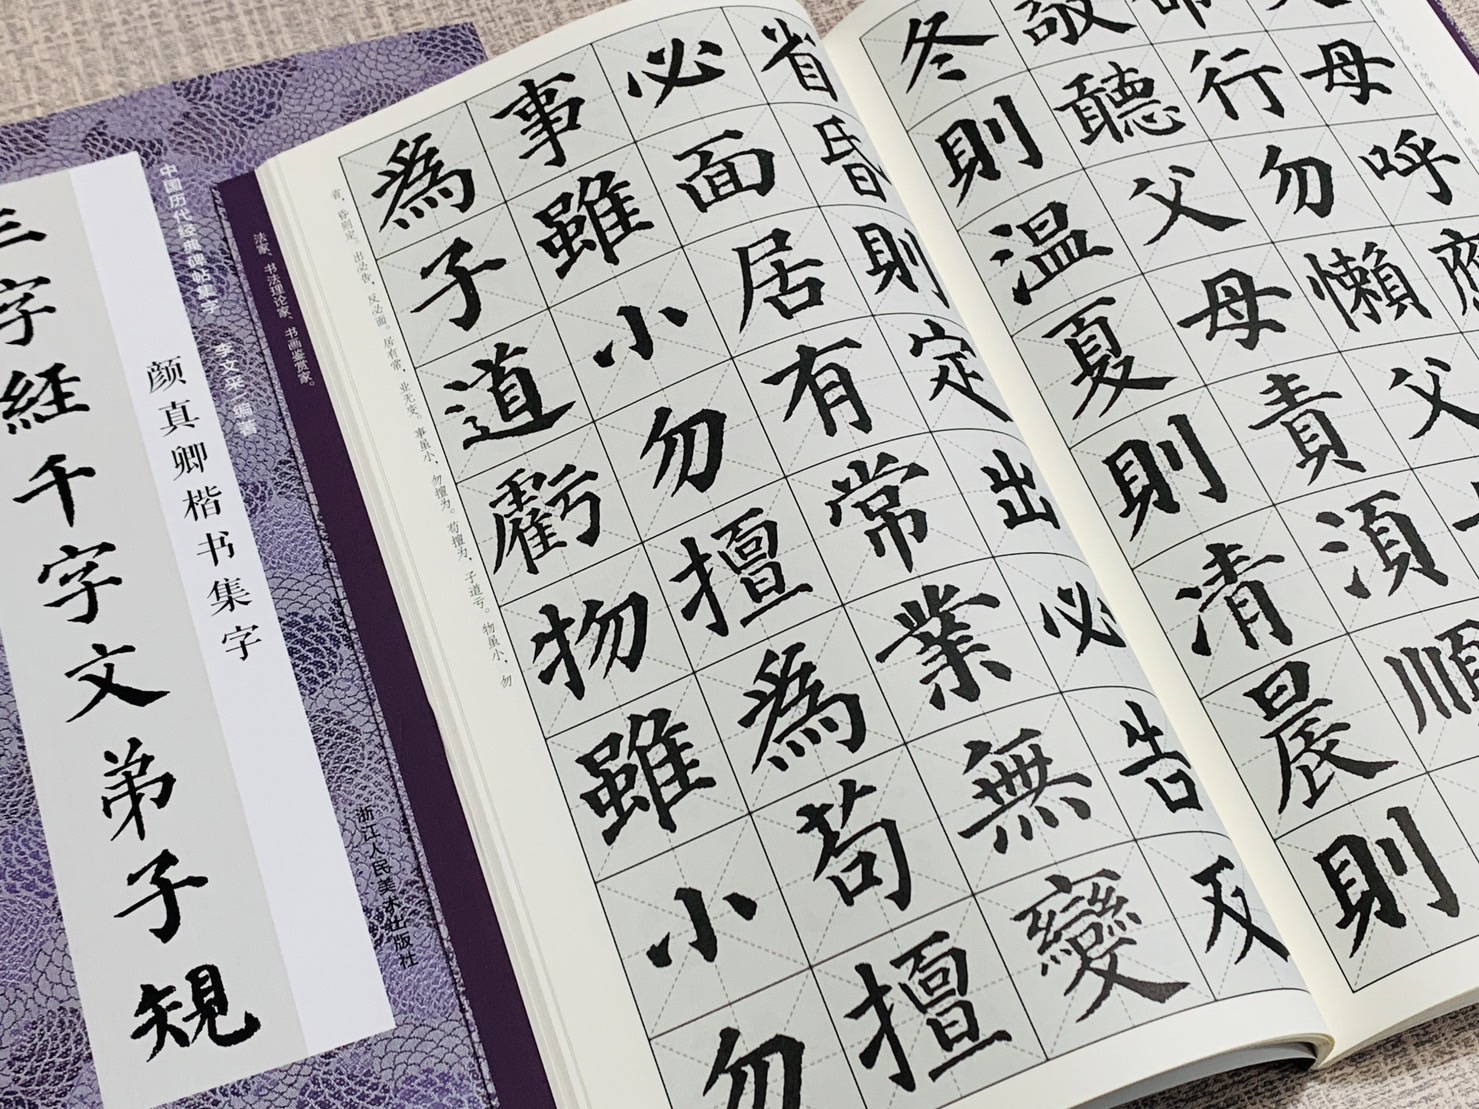 三字経千字文弟子規
颜真卿楷书集字
中国历代经典碑帖集字 李文采 编著
浙江人民美术出版社
法家、书法理论家、书画鉴赏家。
母呼應
行勿懶父
敬聽父母責須順
冬則温夏則清晨則
省昏則定出必告反
必面居有常業無變
事雖小勿擅為苟擅
為子道虧物雖小勿
省，昏则定。出必告，反必面。居有常，业无变。事虽小，勿擅为。苟擅为，子道亏。物虽小，勿